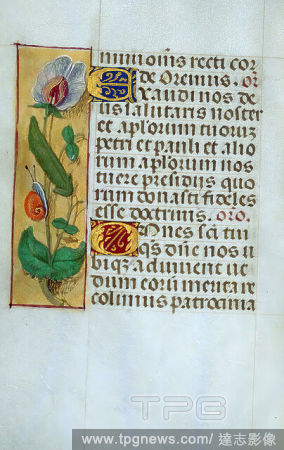 omnis recti cor
de Oremus. or̄.
Exaudi nos de
us salutaris noster
et aplorum tuorū
petri et pauli et alio
rum aplorum nos
tuere presidijs quo
rum donasti fideles
esse doctrinis. oro.
Omnes sc̄i tui
qs dn̄e nos u
biqz adiuuent ue
dum eorū merita re
colimus patrocinia
TPG
www.tpgnews.com/ 達志影像